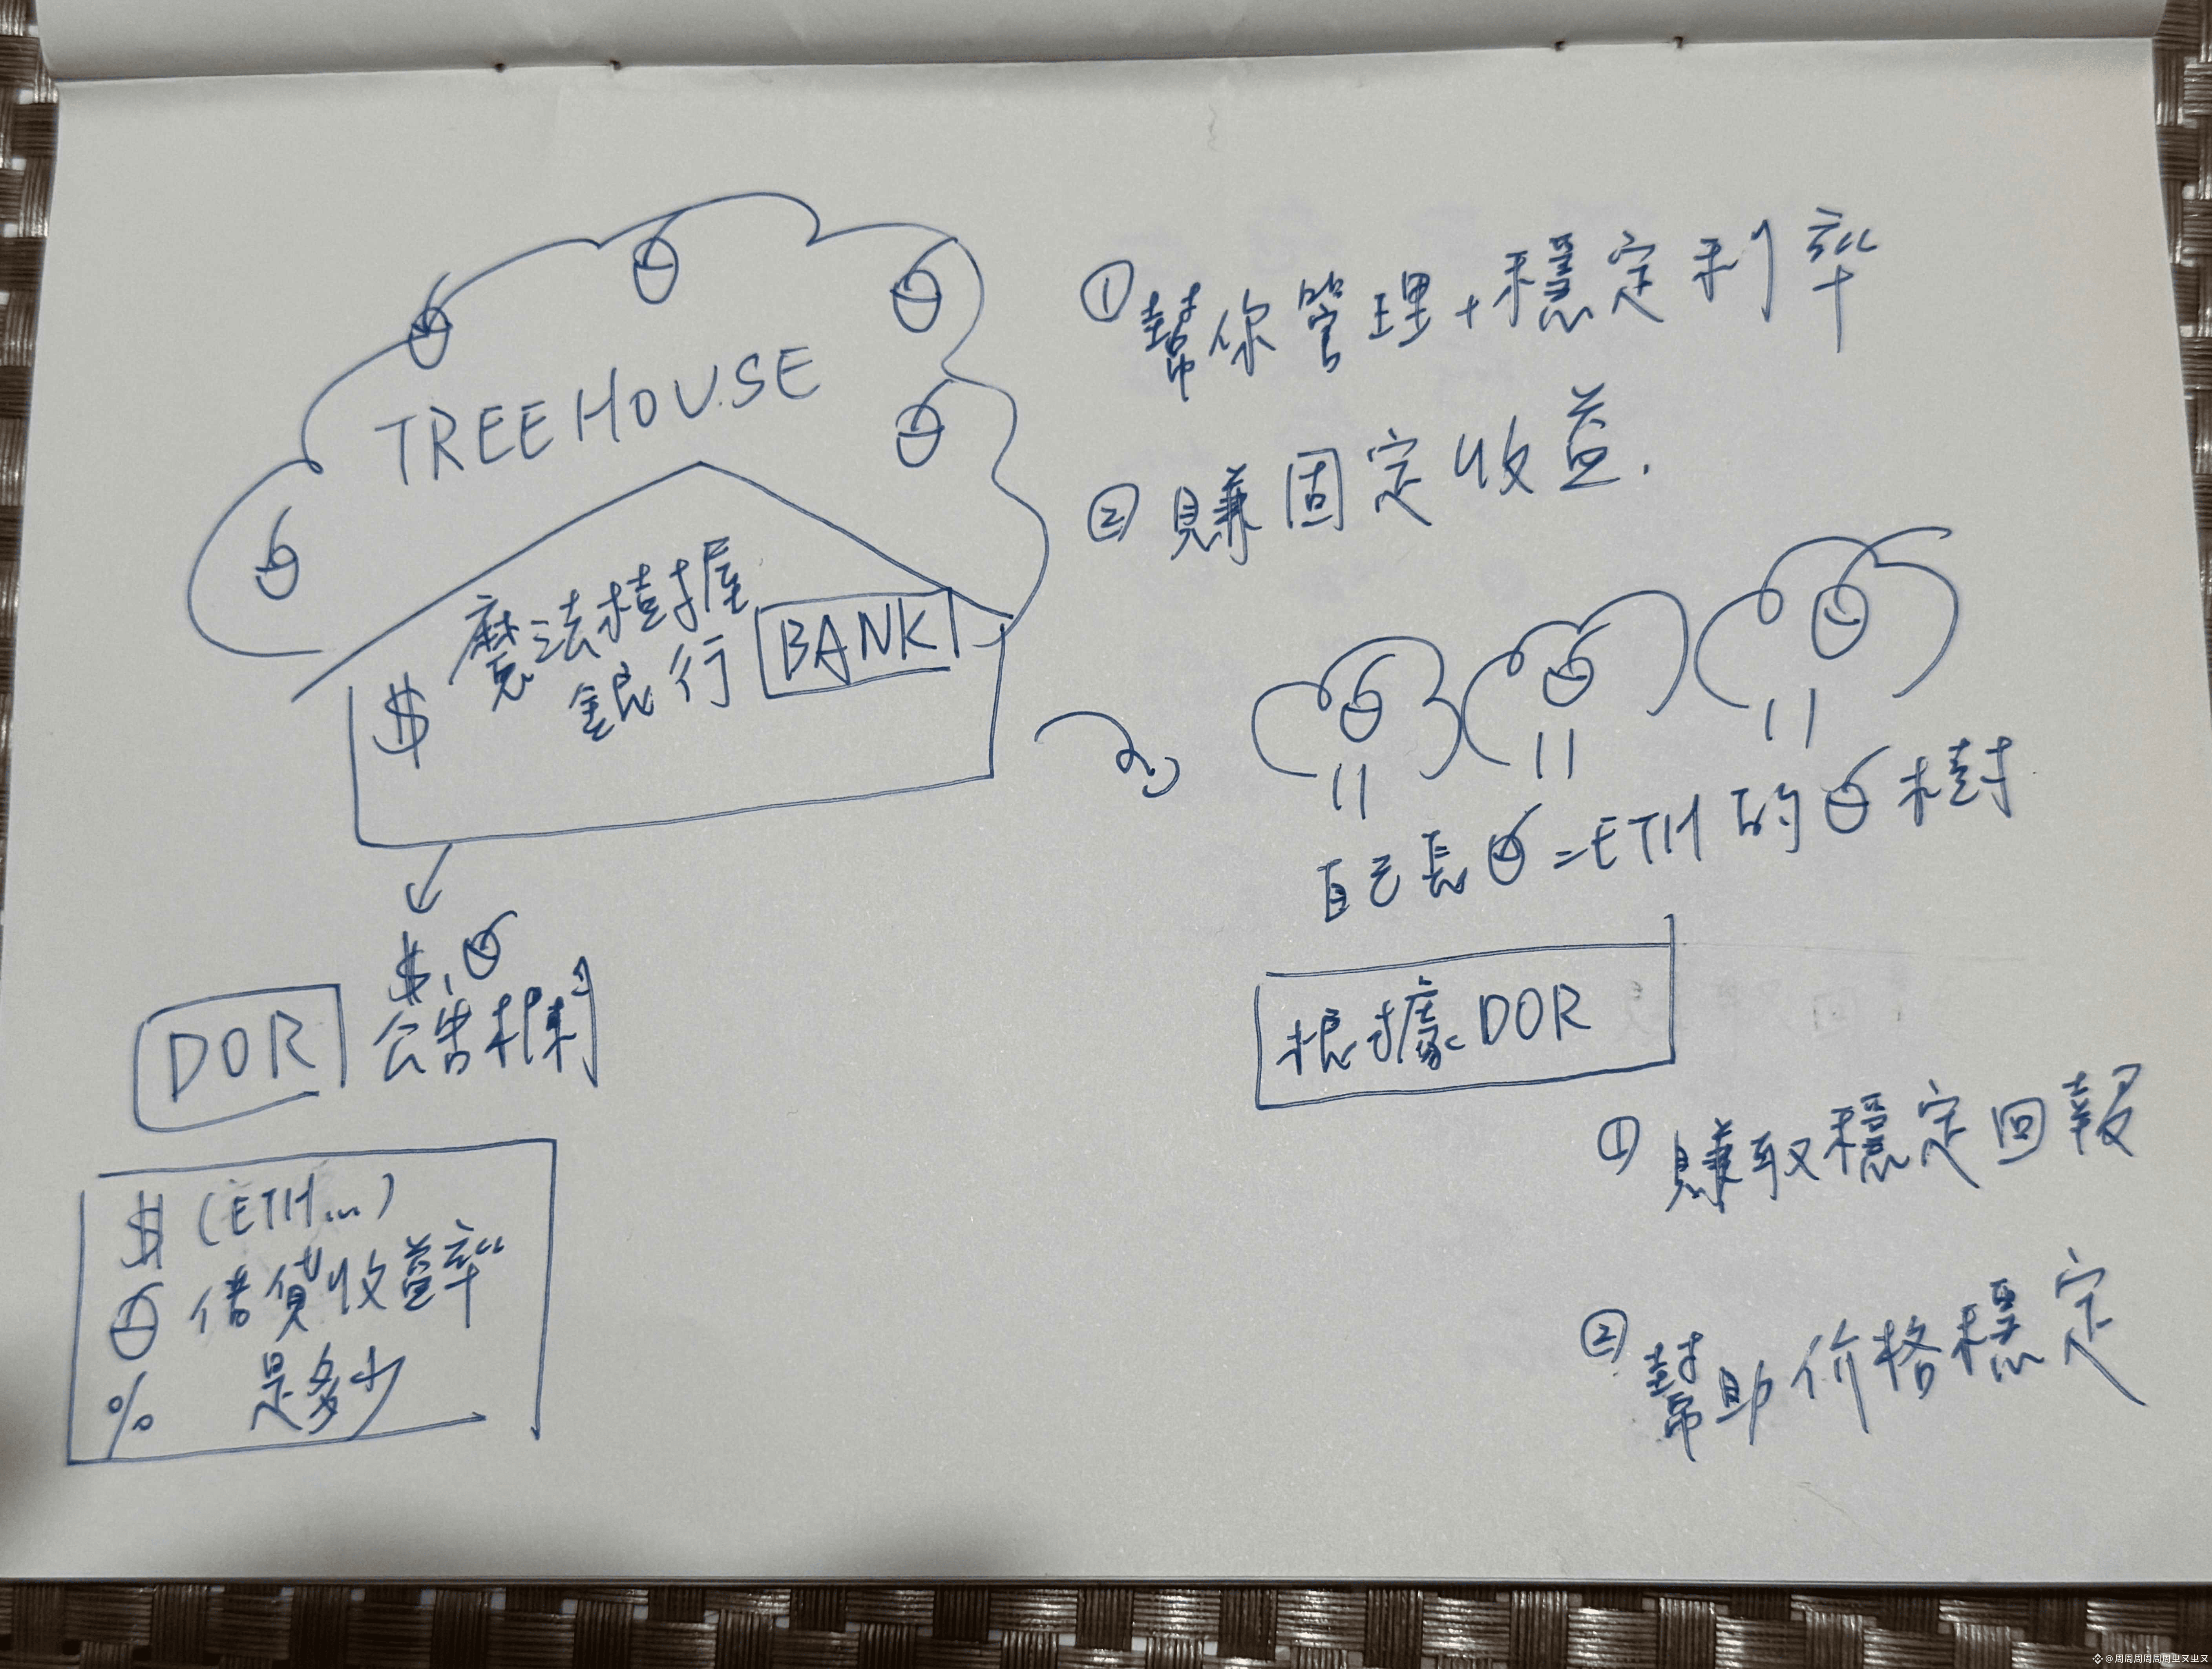 TREEHOUSE
魔法樹握
銀行 BANK
$
①幫你管理+穩定利率
②賺固定收益.
自己長=ETH的樹
$、
DOR 公告欄
$ (ETH...)
借貸收益率
% 是多少
根據DOR
①賺取穩定回報
②幫助价格穩定
@周周周周周周圼叉圼叉